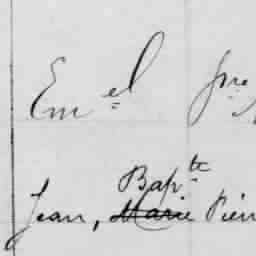 Em.el Jne
Bap.te
Jean, Marie Pierr